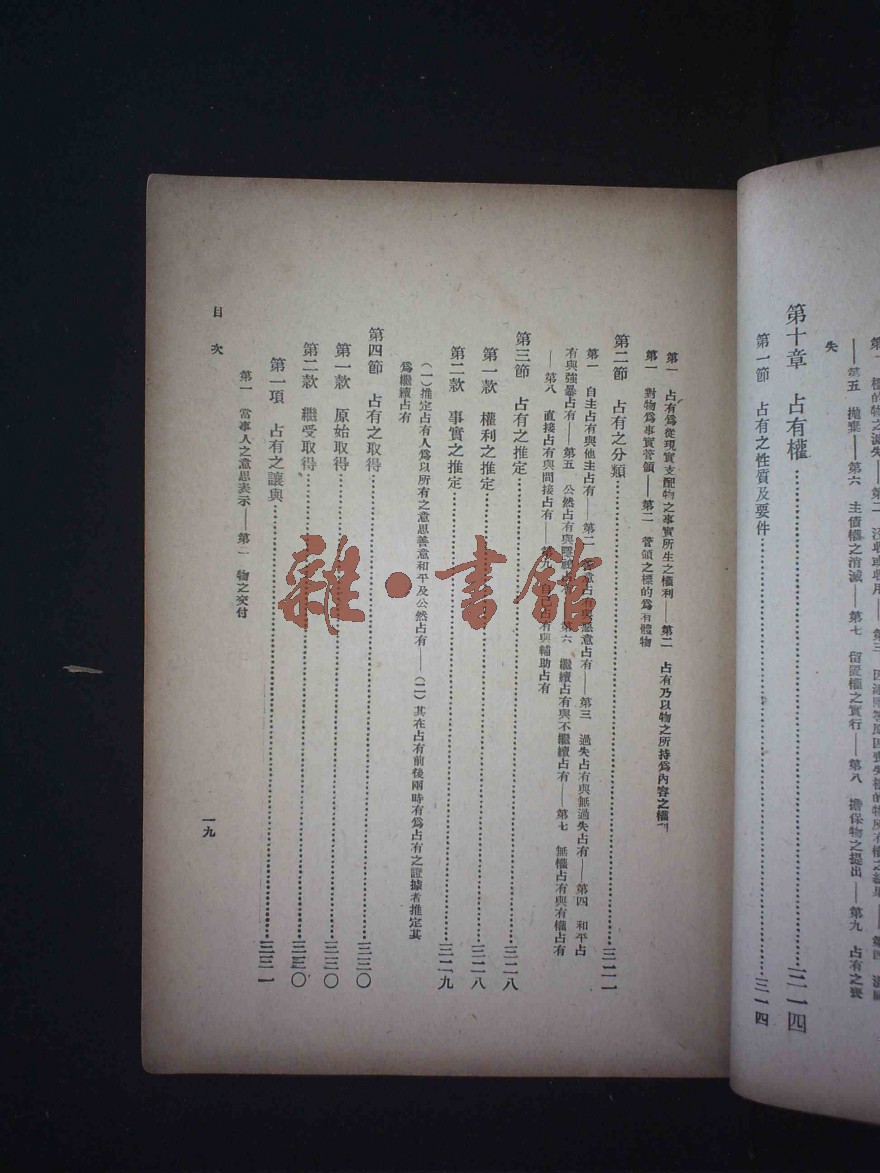 失
——第五　拋棄——第六　主債權之消滅——第七　留置權之實行——第八　擔保物之提出——第九　占有之喪
第十章　占有權……三一四
第一節　占有之性質及要件……三一四
第一　占有爲從現實支配物之事實所生之權利——第二　占有乃以物之所持爲內容之權利
第一　對物爲事實管領——第二　管領之標的爲有體物
第二節　占有之分類……三二一
第一　自主占有與他主占有——第二　善意占有與惡意占有——第三　過失占有與無過失占有——第四　和平占
有與強暴占有——第五　公然占有與隱祕占有——第六　繼續占有與不繼續占有——第七　無權占有與有權占有
——第八　直接占有與間接占有——第九　自己占有與輔助占有
第三節　占有之推定……三二八
第一款　權利之推定……三二八
第二款　事實之推定……三二九
（一）推定占有人爲以所有之意思善意和平及公然占有——（二）其在占有前後兩時有爲占有之證據者推定其
爲繼續占有
第四節　占有之取得……三三〇
第一款　原始取得……三三〇
第二款　繼受取得……三三〇
第一項　占有之讓與……三三一
第一　當事人之意思表示——第二　物之交付
目次
一九
雜·書館